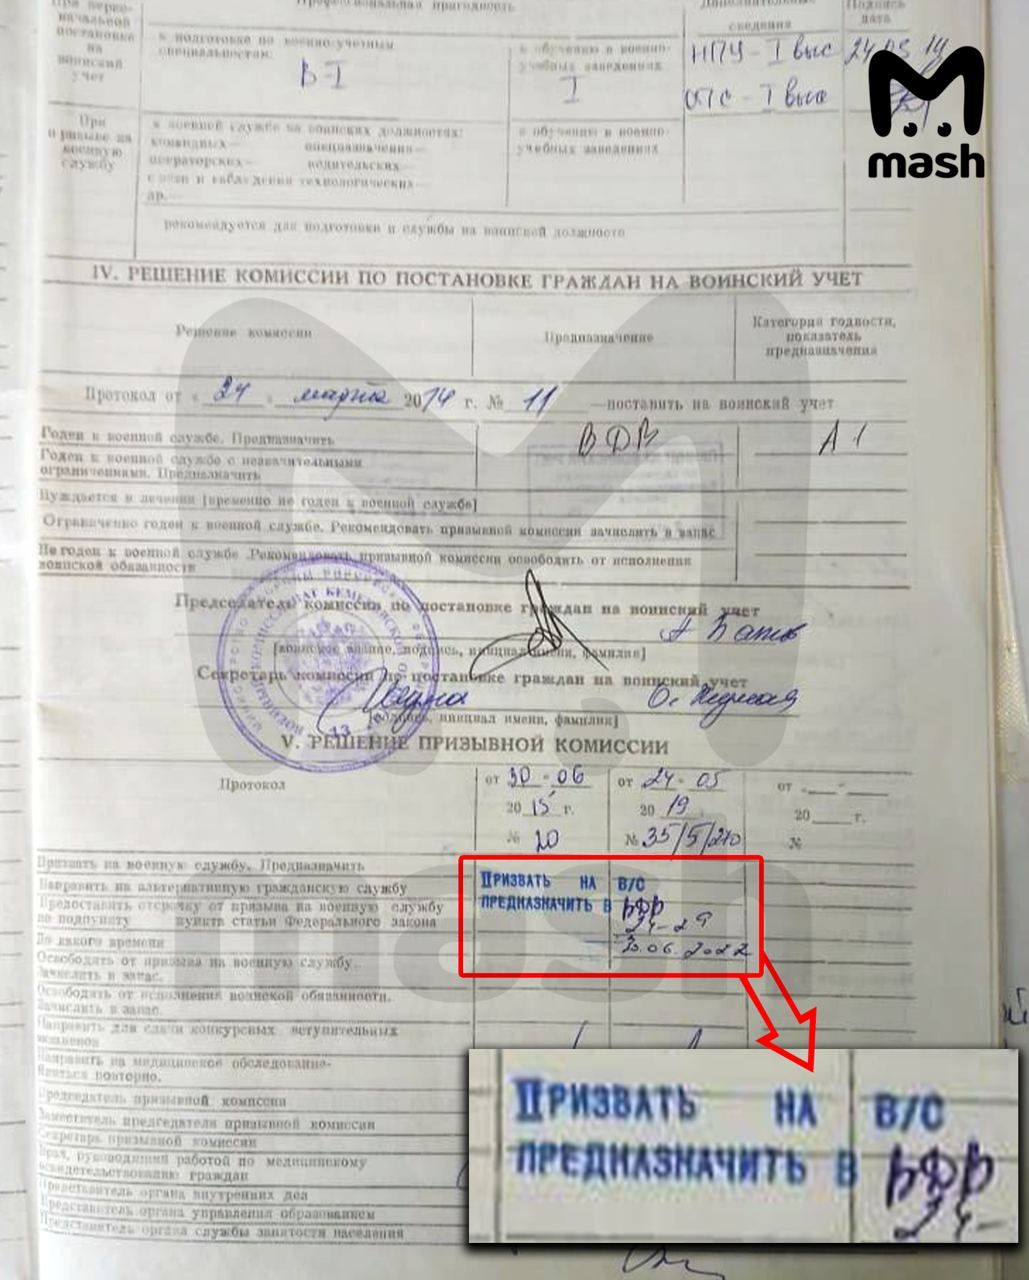 При перво-
начальной
постановке
на
воинский
учет
Профессиональная пригодность
к подготовке по военно-учетным
специальностям
В-I
к обучению в военно-
учебных заведениях
I
Дополнительные
сведения
НПУ - I выс
ОПС - I выс
Подпись
дата
24.03.14
mash
При
призыве на
военную
службу
к военной службе на воинских должностях:
командных— спецназначения—
операторских— водительских—
связи и наблюдения технологических—
др.—
к обучению в военно-
учебных заведениях
рекомендуется для подготовки и службы на воинской должности
IV. РЕШЕНИЕ КОМИССИИ ПО ПОСТАНОВКЕ ГРАЖДАН НА ВОИНСКИЙ УЧЕТ
Решение комиссии
Предназначение
Категория годности,
показатель
предназначения
Протокол от « 24 » марта 2014 г. № 11 —поставить на воинский учет
Годен к военной службе. Предназначить
ВДВ
А 1
Годен к военной службе с незначительными
ограничениями. Предназначить
Нуждается в лечении [временно не годен к военной службе]
Ограниченно годен к военной службе. Рекомендовать призывной комиссии зачислить в запас
Не годен к военной службе .Рекомендовать призывной комиссии освободить от исполнения
воинской обязанности
Председатель комиссии по постановке граждан на воинский учет
[воинское звание, подпись, инициал имени, фамилия]
Секретарь комиссии по постановке граждан на воинский учет
[подпись, инициал имени, фамилия]
V. РЕШЕНИЕ ПРИЗЫВНОЙ КОМИССИИ
Протокол
от 30 - 06
2015 г.
№ 20
от 24 - 05
2019 г.
№ 35/5/210
от «___»____
20____г.
№
Призвать на военную службу. Предназначить
Направить на альтернативную гражданскую службу
Предоставить отсрочку от призыва на военную службу
по подпункту пункта статьи Федерального закона
До какого времени
Освободить от призыва на военную службу.
Зачислить в запас.
Освободить от исполнения воинской обязанности.
Зачислить в запас.
Направить для сдачи конкурсных вступительных
экзаменов
Направить на медицинское обследование-
Явиться повторно.
Председатель призывной комиссии
Заместитель председателя призывной комиссии
Секретарь призывной комиссии
Врач, руководящий работой по медицинскому
освидетельствованию граждан
Представитель органа внутренних дел
Представитель органа управления образованием
Представитель органа службы занятости населения
ПРИЗВАТЬ НА В/С
ПРЕДНАЗНАЧИТЬ В
24-29
.06.2022
mash
ПРИЗВАТЬ НА В/С
ПРЕДНАЗНАЧИТЬ В
24-